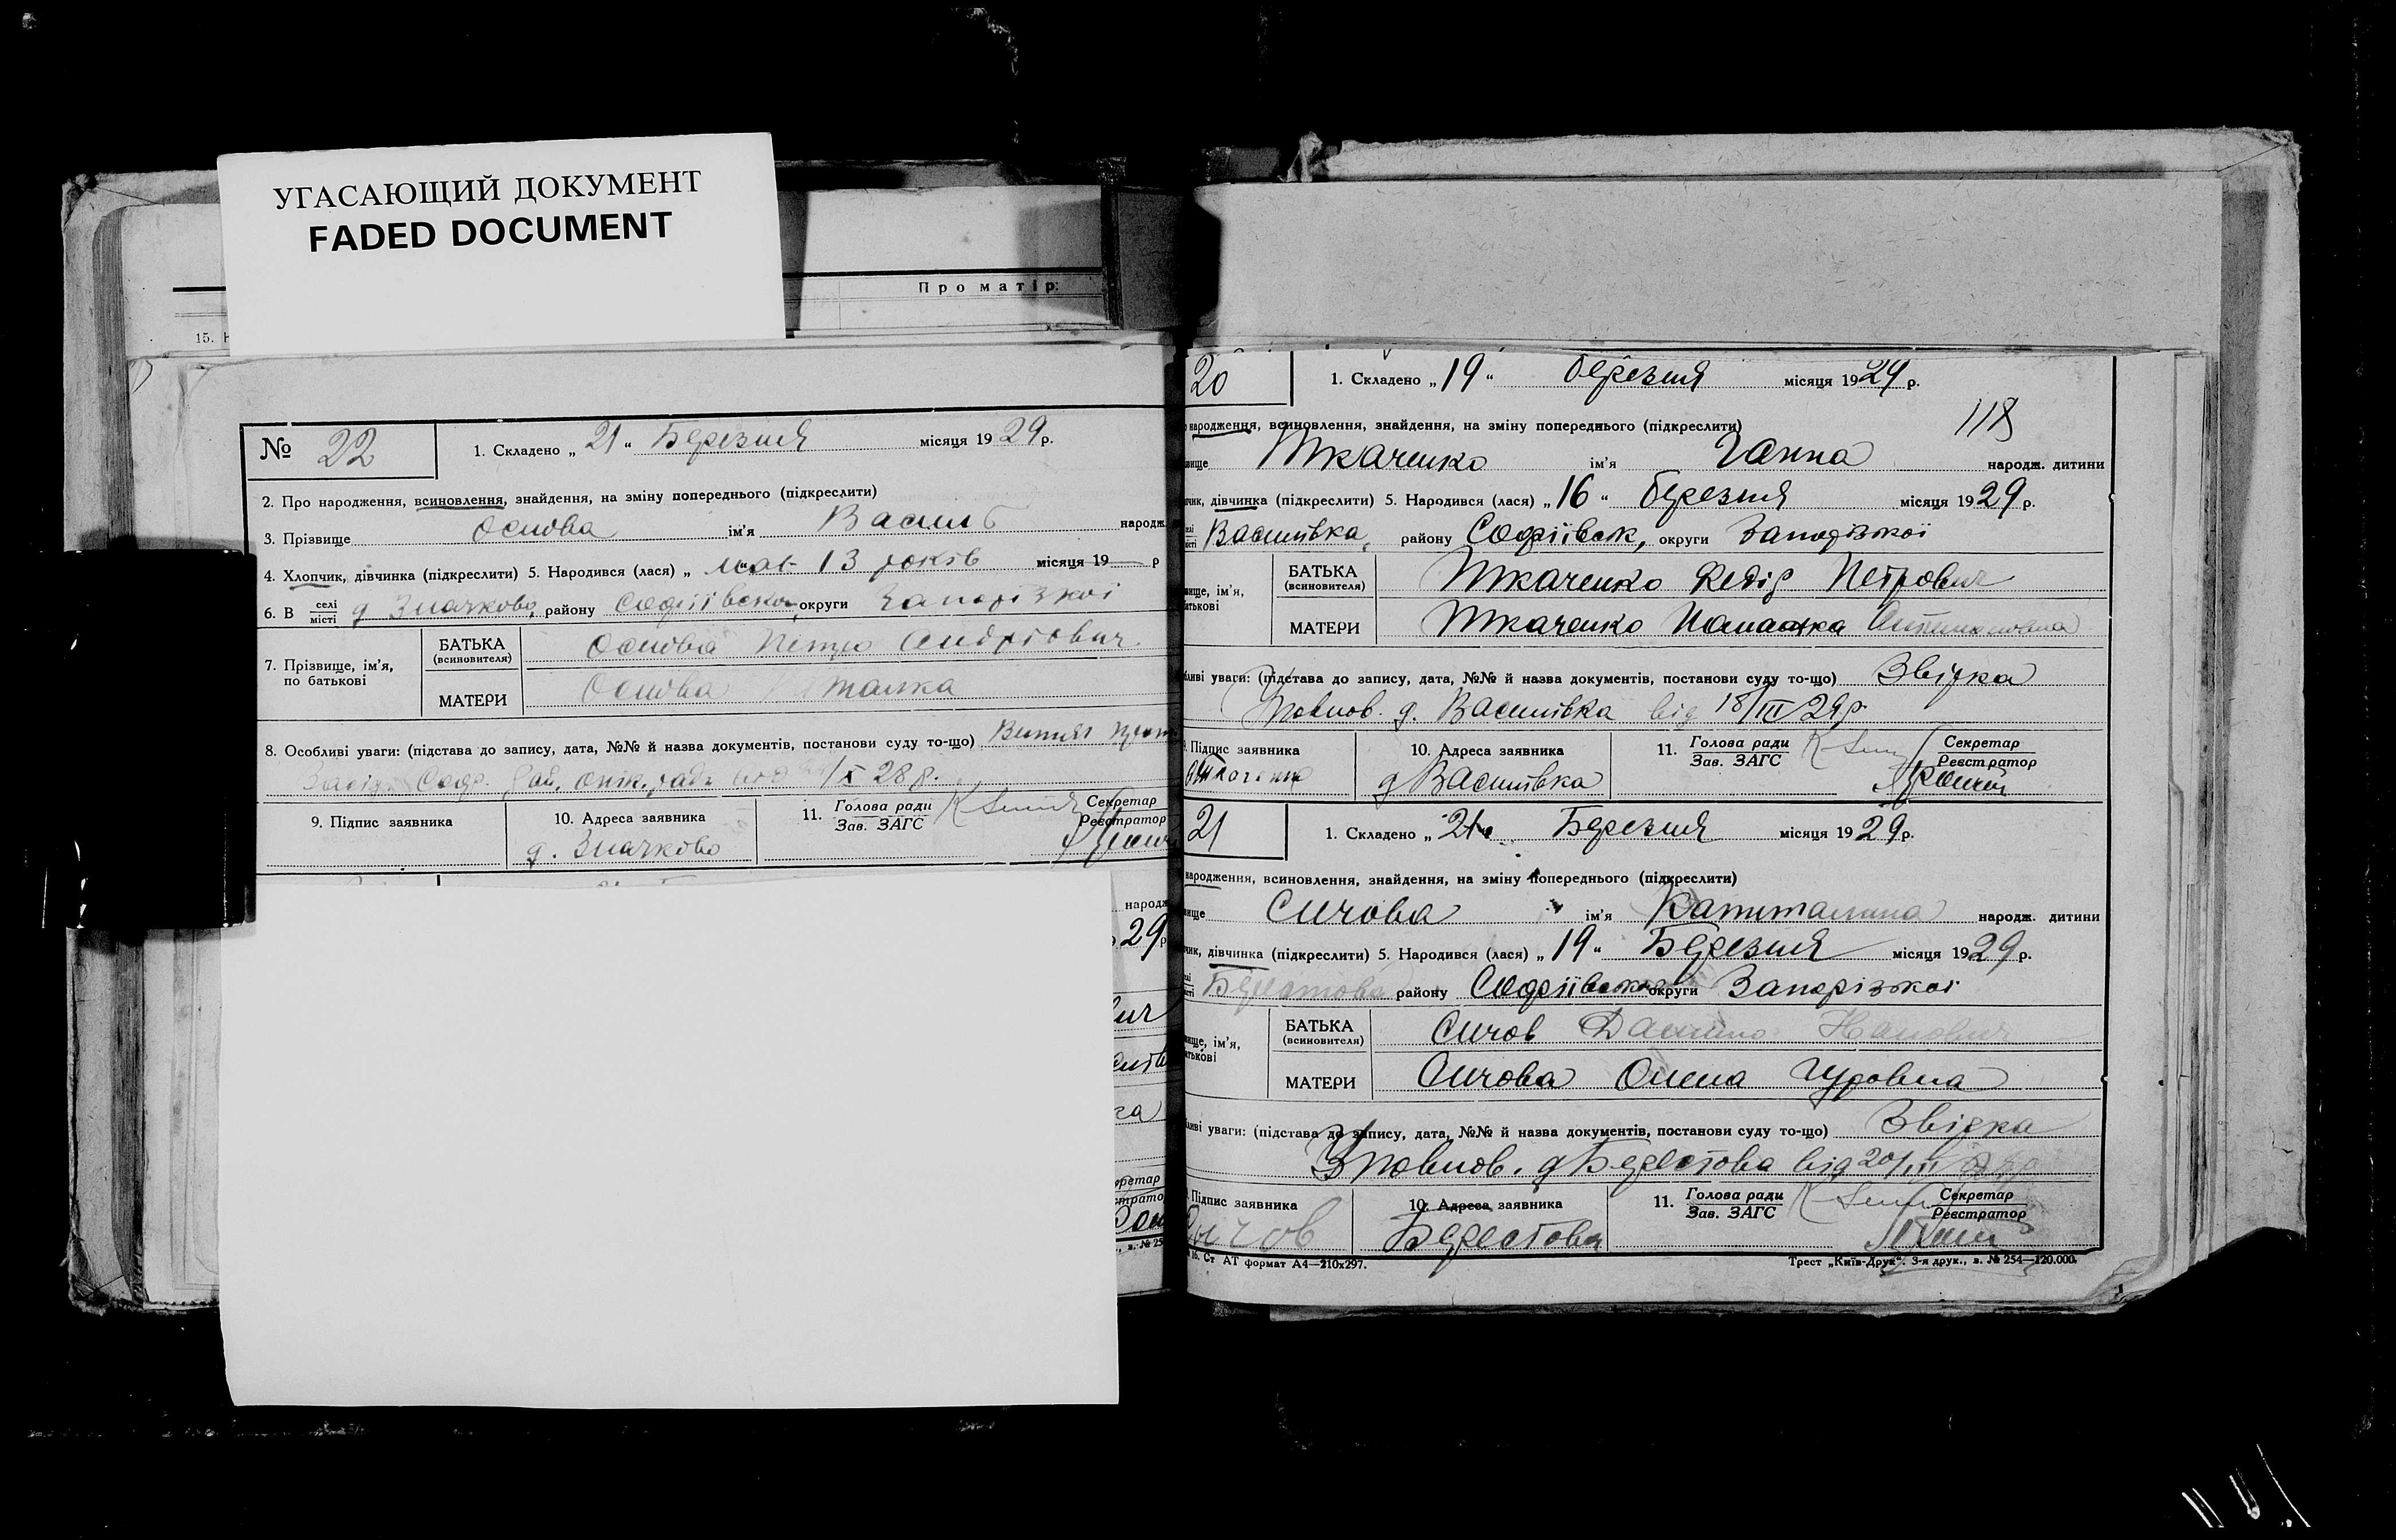 УГАСАЮЩИЙ ДОКУМЕНТ
FADED DOCUMENT
Про матір:
15.
№ 22
1. Складено „ 21 “ Березня місяця 1929 р.
2. Про народження, всиновлення, знайдення, на зміну попереднього (підкреслити)
3. Прізвище Основа ім'я Василь народж.
4. Хлопчик, дівчинка (підкреслити) 5. Народився (лася) „ має 13 років місяця 19 р
6. В селі місті д Значково, району Софіївськ округи Запорізкої
7. Прізвище, ім'я, по батькові
БАТЬКА (всиновителя) Основа Петро Андрієвич
МАТЕРИ Основа
8. Особливі уваги: (підстава до запису, дата, №№ й назва документів, постанови суду то-що) Витяг
Софр. рай. опік. ради від /X 28 р.
9. Підпис заявника
10. Адреса заявника
д. Значково
11. Голова ради Зав. ЗАГС
Секретар Реєстратор
народж
29 р
20
1. Складено „ 19 “ березня місяця 1929 р.
118
народження, всиновлення, знайдення, на зміну попереднього (підкреслити)
Ткаченко ім'я Ганна народж. дитини
дівчинка (підкреслити) 5. Народився (лася) „ 16 “ березня місяця 1929 р.
Василівка, району Софіївськ, округи Запорізкої
ім'я,
БАТЬКА (всиновителя) Ткаченко Федір Петрович
МАТЕРИ Ткаченко Параска
уваги: (підстава до запису, дата, №№ й назва документів, постанови суду то-що) Звідка
Уповнов. д. Василівка від 18/III 29 р.
Підпис заявника
Ткаченко
10. Адреса заявника
д Василівка
11. Голова ради Зав. ЗАГС
Секретар Реєстратор
21
1. Складено „ 21 “ Березня місяця 1929 р.
народження, всиновлення, знайдення, на зміну попереднього (підкреслити)
Сичова ім'я Капиталина народж. дитини
дівчинка (підкреслити) 5. Народився (лася) „ 19 “ Березня місяця 1929 р.
Берестова району Софіївськ округи Запорізкої
ім'я,
БАТЬКА (всиновителя) Сичов Данило
МАТЕРИ Сичова Олена Гуровна
уваги: (підстава до запису, дата, №№ й назва документів, постанови суду то-що) Звідка
Уповнов. д Берестова від 20/III
Підпис заявника
Сычов
10. Адреса заявника
Берестова
11. Голова ради Зав. ЗАГС
Секретар Реєстратор
16. Ст АТ формат А4—210х297.
Трест „Київ-Друк“. 3-я друк., в. № 254—120.000.